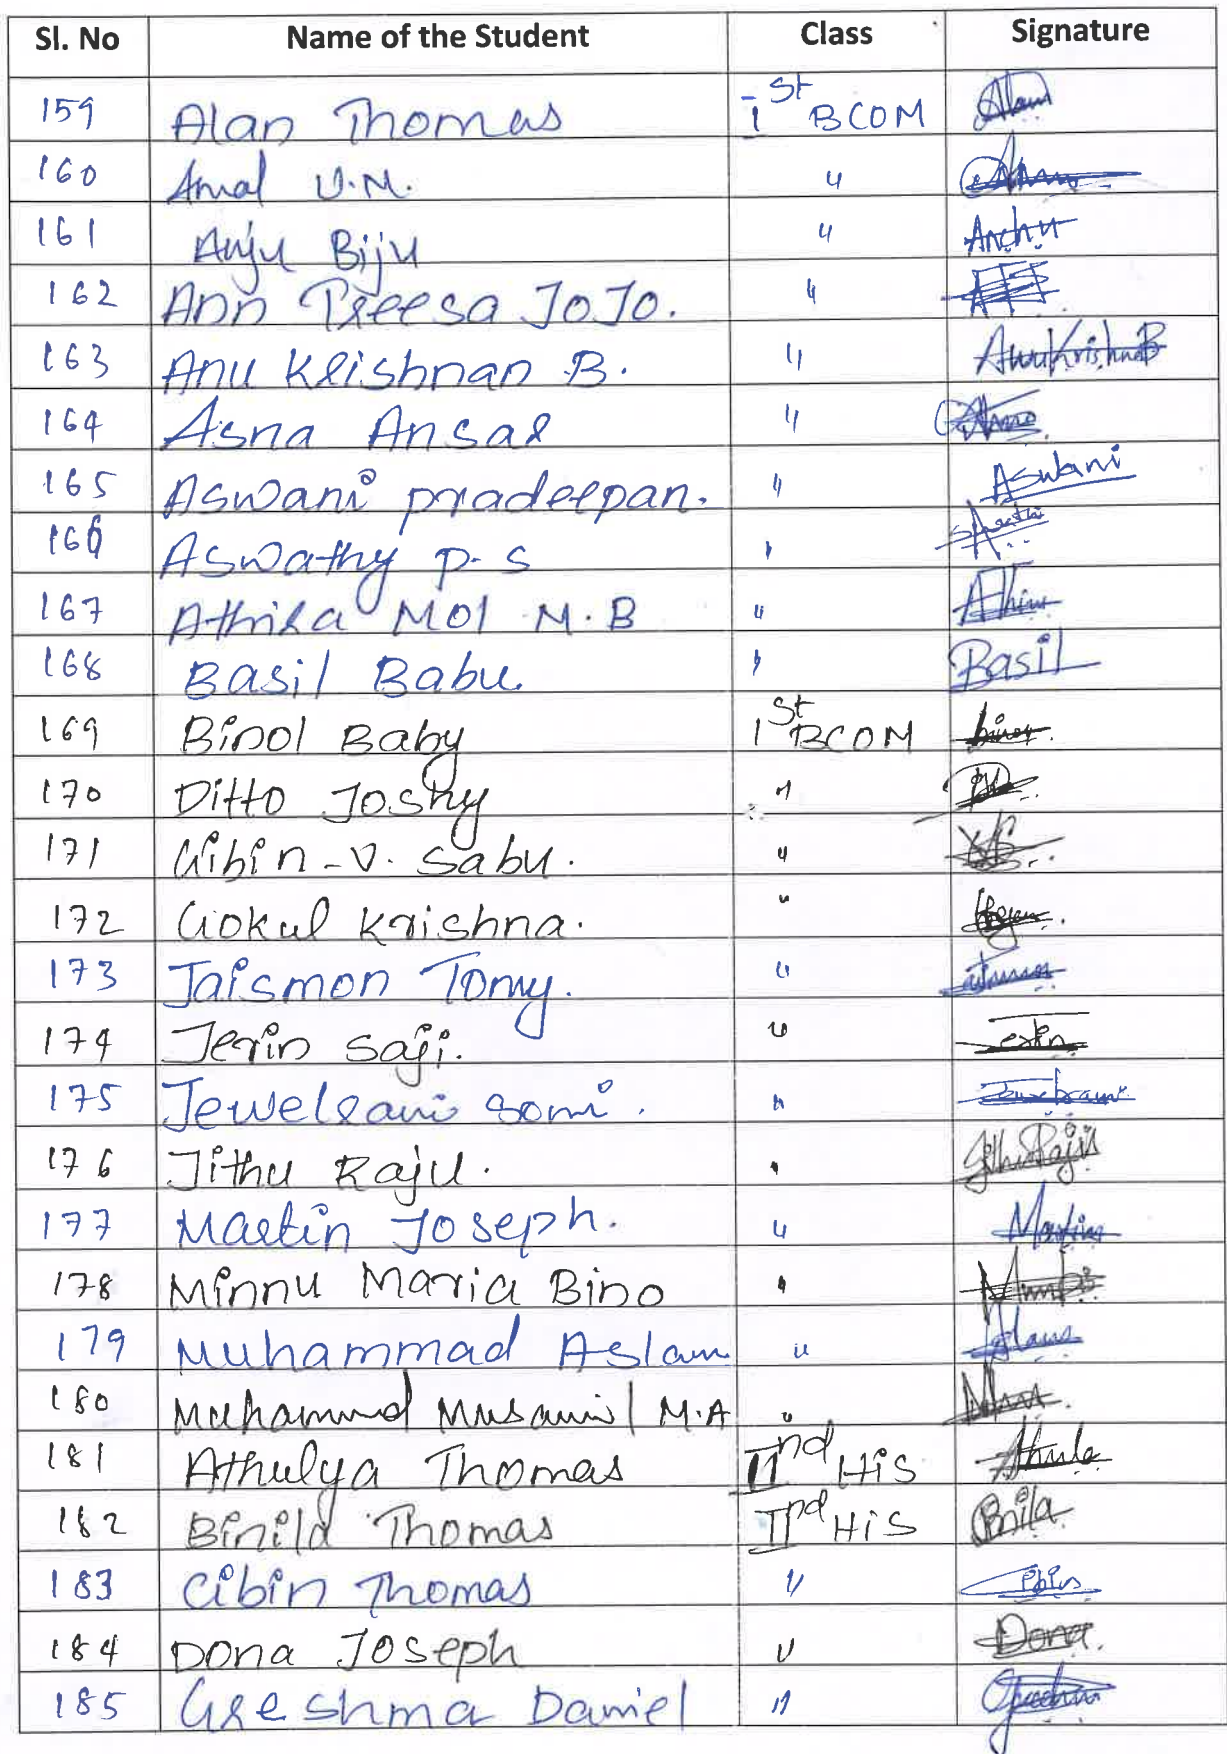 Sl. No Name of the Student Class Signature
159 Alan Thomas Ist BCOM
160 Amal V.M. "
161 Anju Biju " Anchu
162 Ann Treesa JoJo. "
163 Anu Krishnan B. " AnuKrishnaB
164 Asna Ansar "
165 Aswani pradeepan. " Aswani
166 Aswathy p.s "
167 Athira Mol M.B "
168 Basil Babu "  Basil
169 Binol Baby Ist BCOM
170 Ditto Joshy "
171 Gibin-V. Sabu. "
172 Gokul Krishna. "
173 Jaismon Tomy. "
174 Jerin Saji. "
175 Jewelrani Somi. "
176 Jithu Raju. "
177 Martin Joseph. " Martin
178 Minnu Maria Bino "
179 Muhammad Aslam "
180 M.A "
181 Athulya Thomas IInd His
182 Binila Thomas IInd His Bnila
183 Cibin Thomas "
184 Dona Joseph " Dona.
185 Greshma Daniel "